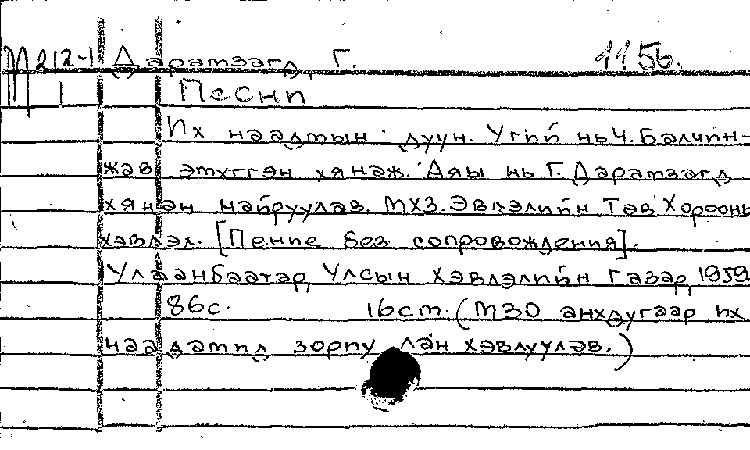 М212-1 Дарамзагд, Г. 115б.
1 Песни
Их наадмын дуун. Үгийг нь Ч. Балчин-
жав эмхгэн хянаж. Аяы нь Г. Дарамзагд
хянан найруулав. МХЗ. Эвлэлийн Төв Хорооны
хэвлэл. [Пение без сопровождения].
Улаанбаатар, Улсын хэвлэлийн газар, 1959
86с. 16см. (МЗО анхдугаар их
наадамд зориулан хэвлүүлэв.)